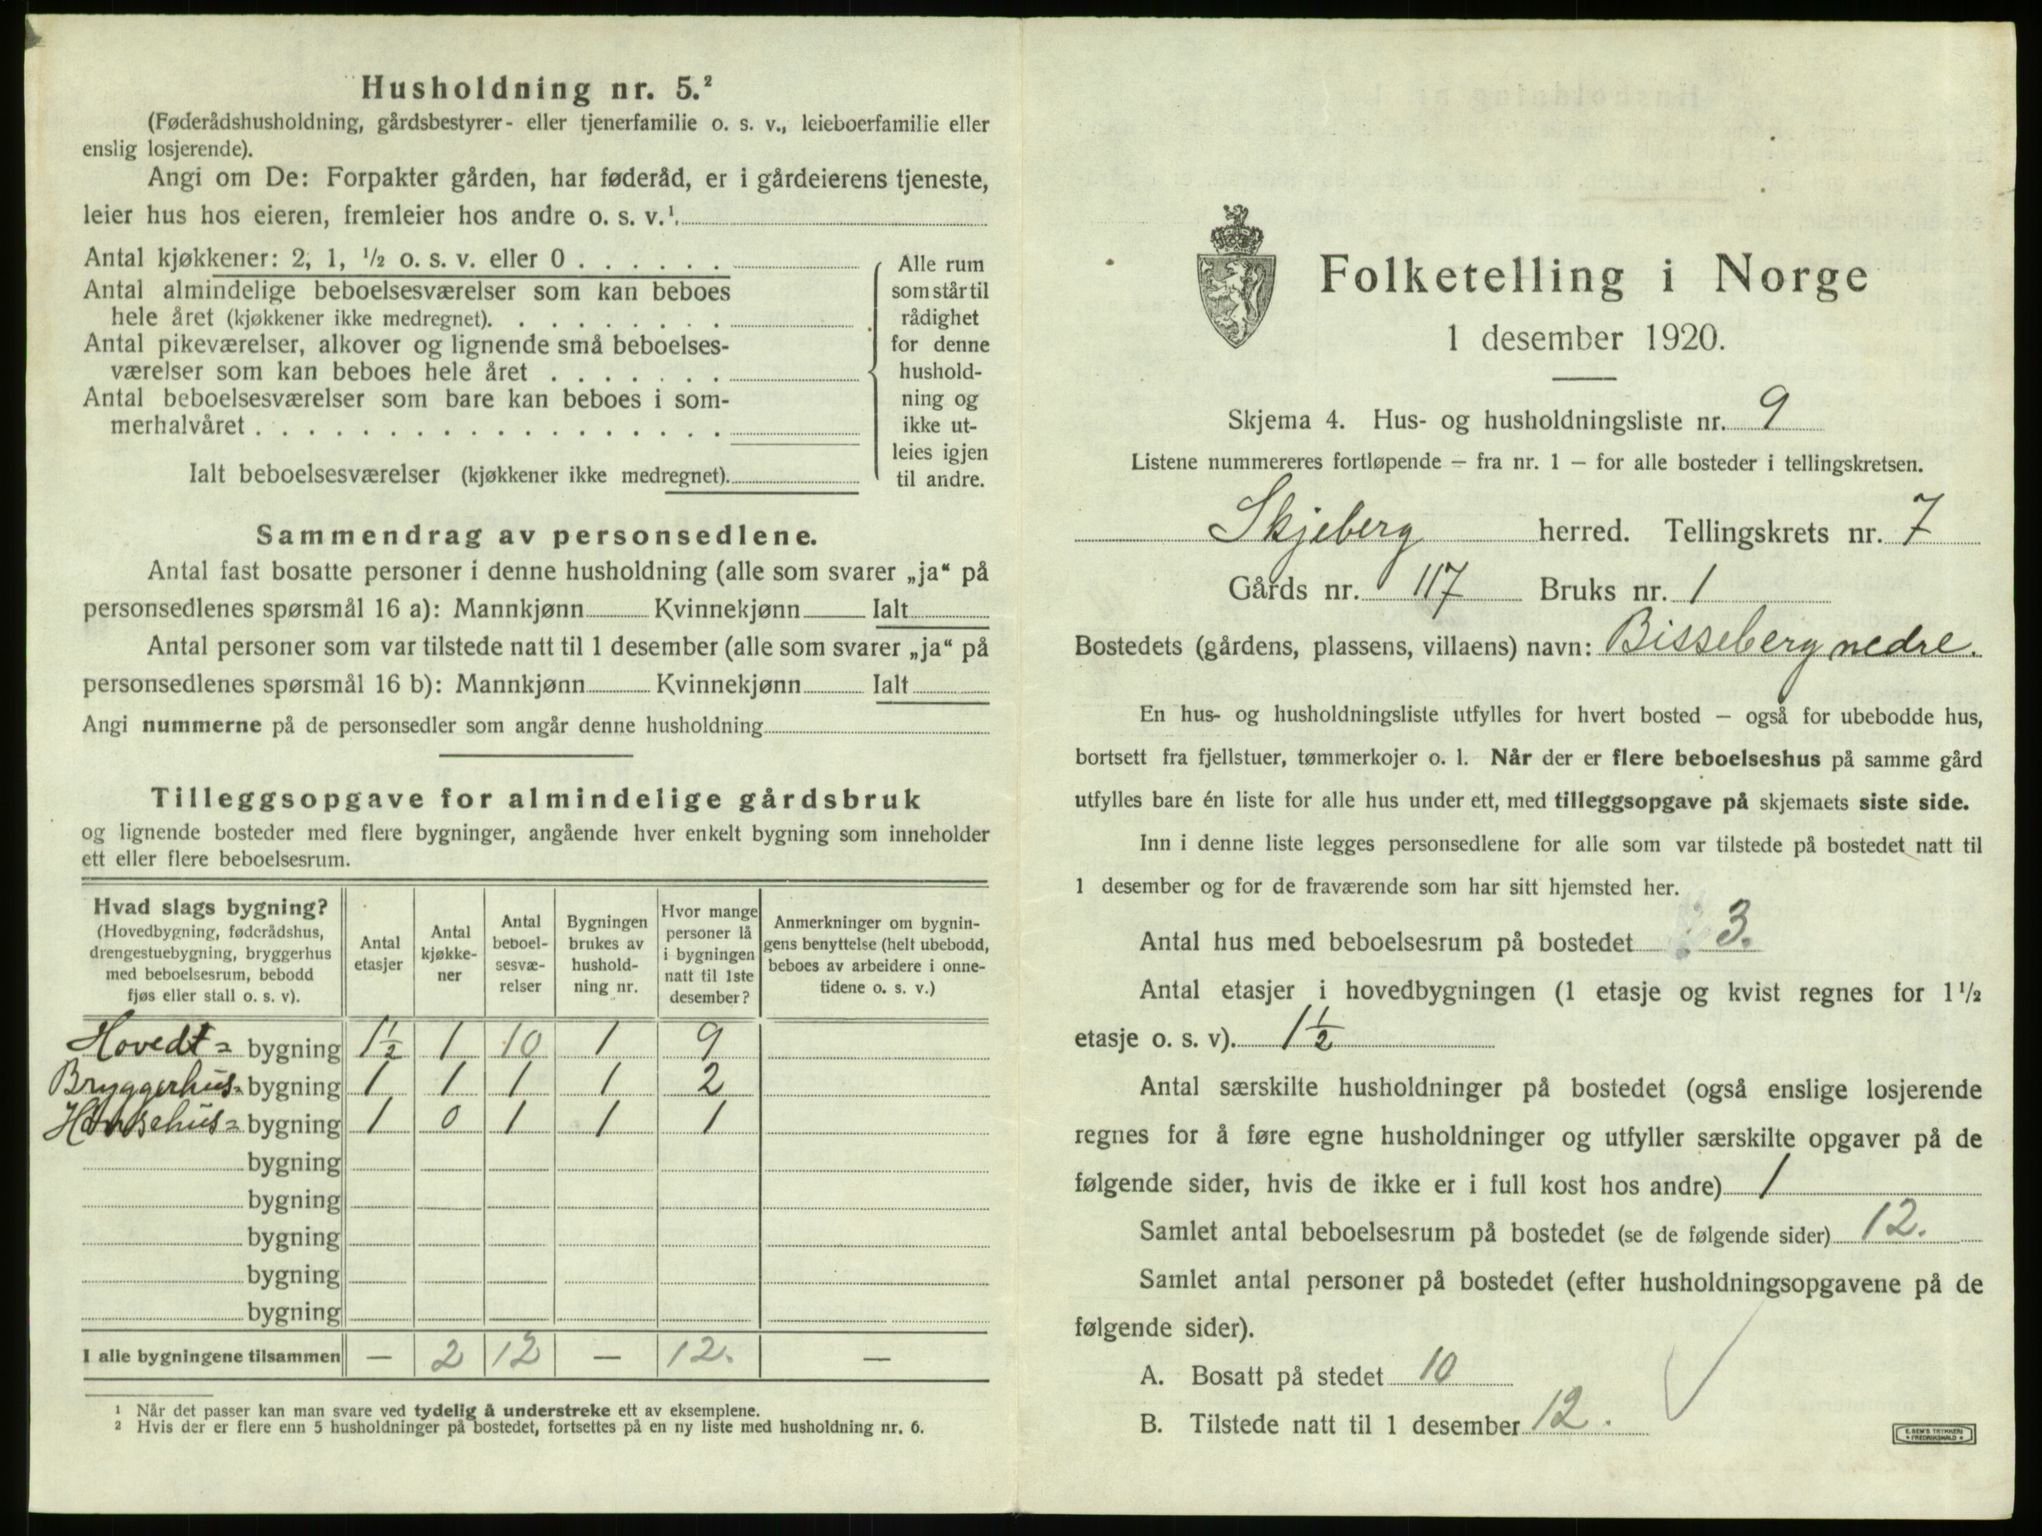 Husholdning nr. 5.²
(Føderådshusholdning, gårdsbestyrer- eller tjenerfamilie o. s. v., leieboerfamilie eller
enslig losjerende).
Angi om De: Forpakter gården, har føderåd, er i gårdeierens tjeneste,
leier hus hos eieren, fremleier hos andre o. s. v.¹
Antal kjøkkener: 2, 1, ½ o. s. v. eller 0 . . . . . .
Antal almindelige beboelsesværelser som kan beboes
hele året (kjøkkener ikke medregnet). . . . . . . . .
Antal pikeværelser, alkover og lignende små beboelses-
værelser som kan beboes hele året . . . . . . .
Antal beboelsesværelser som bare kan beboes i som-
merhalvåret . . . . . . . . . . . . . . . . . .
Ialt beboelsesværelser (kjøkkener ikke medregnet).
Alle rum
som står til
rådighet
for denne
hushold-
ning og
ikke ut-
leies igjen
til andre.
Sammendrag av personsedlene.
Antal fast bosatte personer i denne husholdning (alle som svarer „ja“ på
personsedlenes spørsmål 16 a): Mannkjønn Kvinnekjønn Ialt
Antal personer som var tilstede natt til 1 desember (alle som svarer „ja“ på
personsedlenes spørsmål 16 b): Mannkjønn Kvinnekjønn Ialt
Angi nummerne på de personsedler som angår denne husholdning
Tilleggsopgave for almindelige gårdsbruk
og lignende bosteder med flere bygninger, angående hver enkelt bygning som inneholder
ett eller flere beboelsesrum.
Hvad slags bygning?
(Hovedbygning, føderådshus,
drengestuebygning, bryggerhus
med beboelsesrum, bebodd
fjøs eller stall o. s. v).
Antal
etasjer
Antal
kjøkke-
ner
Antal
beboel-
sesvæ-
relser
Bygningen
brukes av
hushold-
ning nr.
Hvor mange
personer lå
i bygningen
natt til 1ste
desember?
Anmerkninger om bygnin-
gens benyttelse (helt ubebodd,
beboes av arbeidere i onne-
tidene o. s. v.)
Hovedt= bygning 1½ 1 10 1 9
Bryggerhus= bygning 1 1 1 1 2
bygning 1 0 1 1 1
bygning
bygning
bygning
bygning
bygning
I alle bygningene tilsammen — 2 12 — 12. —
¹ Når det passer kan man svare ved tydelig å understreke ett av eksemplene.
² Hvis der er flere enn 5 husholdninger på bostedet, fortsettes på en ny liste med husholdning nr. 6.
Folketelling i Norge
1 desember 1920.
Skjema 4. Hus- og husholdningsliste nr. 9
Listene nummereres fortløpende – fra nr. 1 – for alle bosteder i tellingskretsen.
Skjeberg herred. Tellingskrets nr. 7
Gårds nr. 117 Bruks nr. 1
Bostedets (gårdens, plassens, villaens) navn: Bisseberg nedre.
En hus- og husholdningsliste utfylles for hvert bosted – også for ubebodde hus,
bortsett fra fjellstuer, tømmerkojer o. l. Når der er flere beboelseshus på samme gård
utfylles bare én liste for alle hus under ett, med tilleggsopgave på skjemaets siste side.
Inn i denne liste legges personsedlene for alle som var tilstede på bostedet natt til
1 desember og for de fraværende som har sitt hjemsted her.
Antal hus med beboelsesrum på bostedet 3.
Antal etasjer i hovedbygningen (1 etasje og kvist regnes for 1½
etasje o. s. v). 1½
Antal særskilte husholdninger på bostedet (også enslige losjerende
regnes for å føre egne husholdninger og utfyller særskilte opgaver på de
følgende sider, hvis de ikke er i full kost hos andre) 1
Samlet antal beboelsesrum på bostedet (se de følgende sider) 12.
Samlet antal personer på bostedet (efter husholdningsopgavene på de
følgende sider).
A. Bosatt på stedet 10
B. Tilstede natt til 1 desember 12.
E. SEM'S TRYKKERI
FREDRIKSHALD